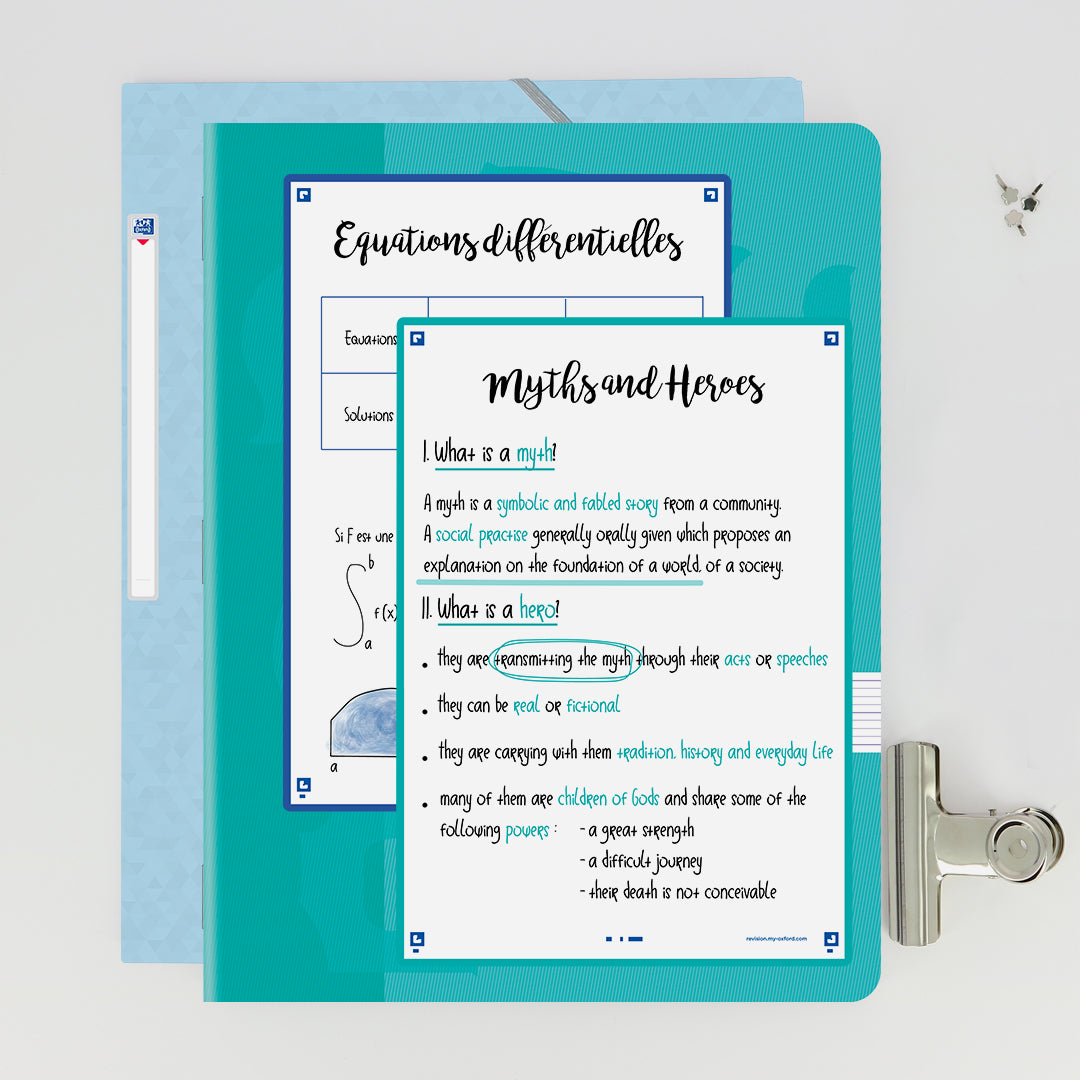 Equations différentielles
Equations
Solutions
Si F est une
b
f(x)
a
a
Myths and Heroes
I. What is a myth?
A myth is a symbolic and fabled story from a community.
A social practise generally orally given which proposes an
explanation on the foundation of a world, of a society.
II. What is a hero?
• they are transmitting the myth through their acts or speeches
• they can be real or fictional
• they are carrying with them tradition, history and everyday life
• many of them are children of Gods and share some of the
following powers : - a great strength
- a difficult journey
- their death is not conceivable
revision.my-oxford.com